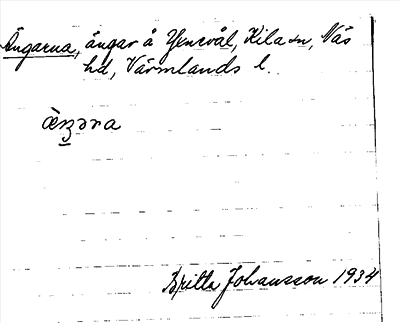 Ängarna, ängar å Yenvål, Kila sn, Näs
hd, Värmlands l.
Britta Johansson 1934